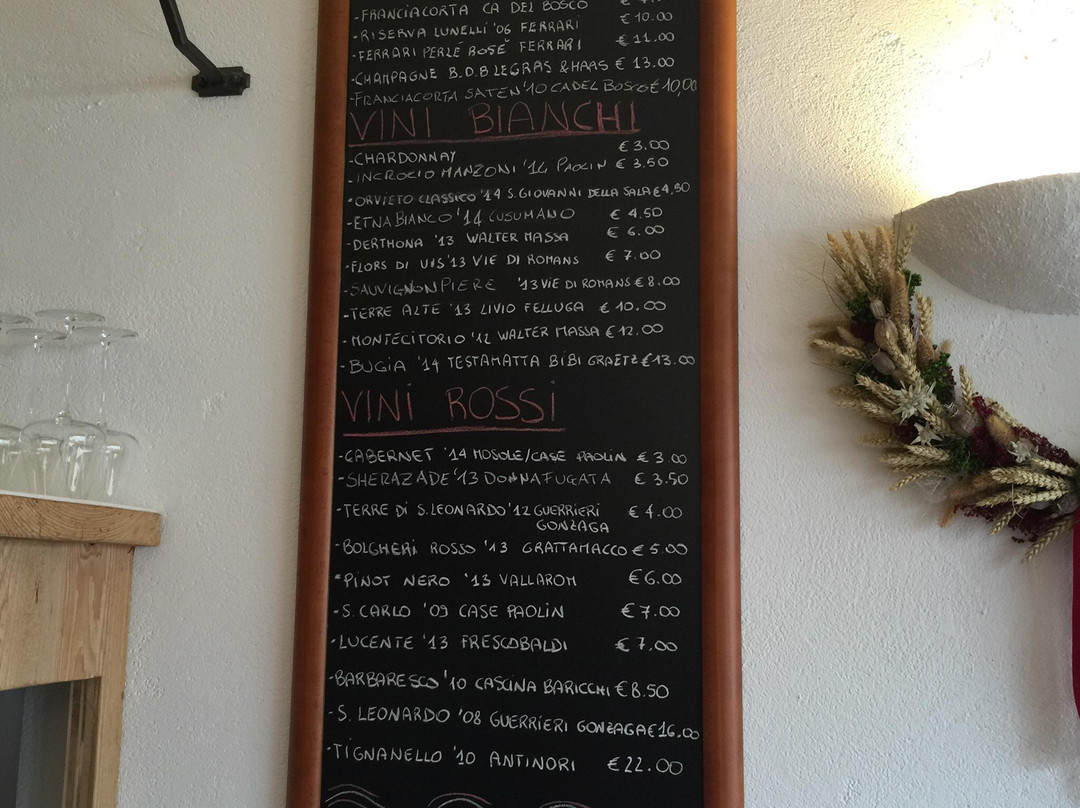 -FRANCIACORTA CA DEL BOSCO €
-RISERVA LUNELLI '06 FERRARI € 10.00
-FERRARI PERLÈ ROSÈ FERRARI € 11.00
-CHAMPAGNE B.D.B LEGRAS & HAAS € 13.00
-FRANCIACORTA SATEN '10 CA DEL BOSCO € 10,00
VINI BIANCHI
-CHARDONNAY € 3.00
-INCROCIO MANZONI '14 PAOLIN € 3.50
-ORVIETO CLASSICO '14 S.GIOVANNI DELLA SALA € 4,50
-ETNA BIANCO '14 CUSUMANO € 4.50
-DERTHONA '13 WALTER MASSA € 6.00
-FLORS DI UIS '13 VIE DI ROMANS € 7.00
-SAUVIGNON PIERE '13 VIE DI ROMANS € 8.00
-TERRE ALTE '13 LIVIO FELLUGA € 10.00
-MONTECITORIO '12 WALTER MASSA € 12.00
-BUGIA '14 TESTAMATTA BIBI GRAETZ € 13.00
VINI ROSSI
-CABERNET '14 MOSOLE/CASE PAOLIN € 3.00
-SHERAZADE '13 DONNAFUGATA € 3.50
-TERRE DI S.LEONARDO '12 GUERRIERI € 4.00
GONZAGA
-BOLGHERI ROSSO '13 GRATTAMACCO € 5.00
-PINOT NERO '13 VALLAROM € 6.00
-S. CARLO '09 CASE PAOLIN € 7.00
-LUCENTE '13 FRESCOBALDI € 7.00
-BARBARESCO '10 CASCINA BARICCHI € 8.50
-S. LEONARDO '08 GUERRIERI GONZAGA € 16.00
-TIGNANELLO '10 ANTINORI € 22.00